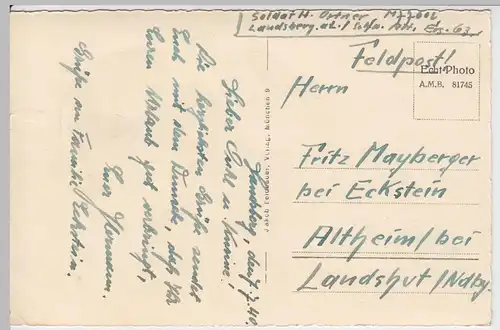 Soldat H. Ortner
Landsberg a.L./
Feldpost!
Echt Photo
A.M.B. 81745
Herrn
Fritz Mayberger
bei Eckstein
Altheim/bei
Landshut/Ndby.
Landsberg, den
Lieber Onkl u. Hanne!
Die herzlichsten Grüße sendet
Euch mit dem Wunsche, daß Ihr
Euren Urlaub gut verbringt,
Euer Hermann.
Grüße an Familie Eckstein.